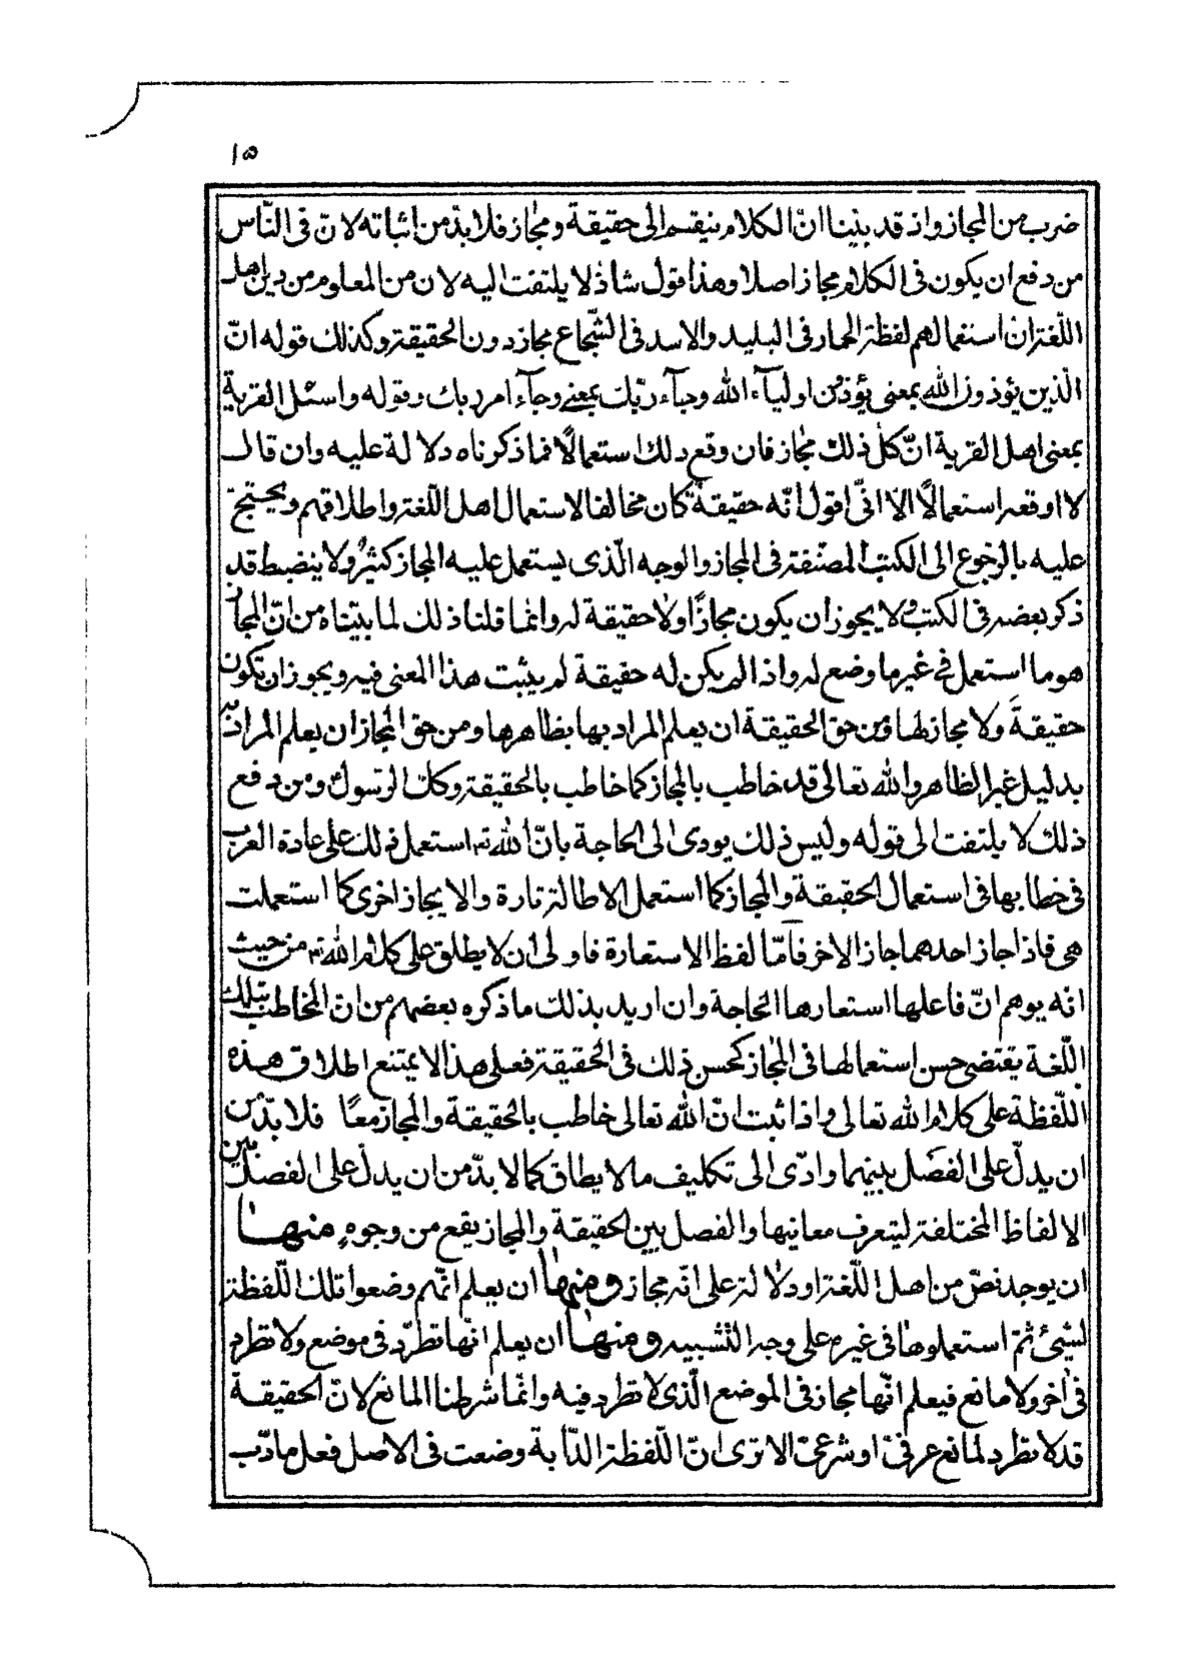 ١٥
ضرب من المجاز واذ قد بيّنا انّ الكلام ينقسم الى حقيقة ومجاز فلا بدّ من اثباته لانّ فى النّاس
من دفع ان يكون فى الكلام مجاز اصلا وهذا قول شاذ لا يلتفت اليه لان من المعلوم من دين اهل
اللّغة ان استعمالهم لفظة الحمار فى البليد والاسد فى الشّجاع مجاز دون الحقيقة وكذلك قوله انّ
الّذين يؤذون الله بمعنى يؤذون اوليآء الله وجآء ربّك بمعنى وجآء امر ربك وقوله واسئل القرية
بمعنى اهل القرية انّ كلّ ذلك مجاز فان وقع ذلك استعمالًا فما ذكرناه دلالة عليه وان قال
لا اوقعه استعمالًا الّا انّى اقول انّه حقيقةٌ كان مخالفا لاستعمال اهل اللّغة واطلاقهم ويحتج
عليه بالرّجوع الى الكتب المصنّفة فى المجاز والوجه الّذى يستعمل عليه المجاز كثيرٌ ولا ينضبط قد
ذكر بعضه فى الكتب ولا يجوز ان يكون مجازًا ولا حقيقة له وانّما قلنا ذلك لما بيّناه من انّ المجاز
هو ما استعمل فى غير ما وضع له واذا لم يكن له حقيقة لم يثبت هذا المعنى فيه ويجوز ان تكون
حقيقةَ ولا مجاز لها ومن حق الحقيقة ان يعلم المراد بها بظاهرها ومن حق المجاز ان يعلم المراد به
بدليل غير الظاهر والله تعالى قد خاطب بالمجاز كما خاطب بالحقيقة وكذا الرّسول ومن دفع
ذلك لا يلتفت الى قوله وليس ذلك يودى الى الحاجة بانّ الله تع استعمل ذلك على عادة العرب
فى خطابها فى استعمال الحقيقة والمجاز كما استعمل الاطالة تارة والايجاز اخرى كما استعملت
هى فاذا جاز احدهما جاز الاخر فآمّا لفظ الاستعارة فاولى ان لا يطلق على كلام الله تع من حيث
انه يوهم انّ فاعلها استعارها الحاجة وان اريد بذلك ما ذكره بعضهم من انّ المخاطب بتلك
اللّغة يقتضى حسن استعمالها فى المجاز كحسن ذلك فى الحقيقة فعلى هذا لا يمتنع اطلاق هذه
اللّفظة على كلام الله تعالى واذا ثبت انّ الله تعالى خاطب بالحقيقة والمجاز معًا فلا بدّ من
ان يدلّ على الفصل بينهما وادّى الى تكليف ما لا يطاق كما لا بدّ من ان يدلّ على الفصل بين
الالفاظ المختلفة ليتعرف معانيها والفصل بين الحقيقة والمجاز يقع من وجوهٍ منها
ان يوجد نصّ من اهل اللّغة او دلالة على انّه مجاز ومنها ان يعلم انّهم وضعوا تلك اللّفظة
لشىءٍ ثمّ استعملوها فى غيره على وجه التّشبيه ومنها ان يعلم انّها تطّرد فى موضع ولا تطرد
فى اخر ولا مانع فيعلم انّها مجاز فى الموضع الّذى لا تطرد فيه وانّما شرطنا المانع لانّ الحقيقة
قد لا تطرد لمانع عرفىّ او شرعىّ الا ترى انّ اللّفظة الدّابة وضعت فى الاصل فعل ما دبّ